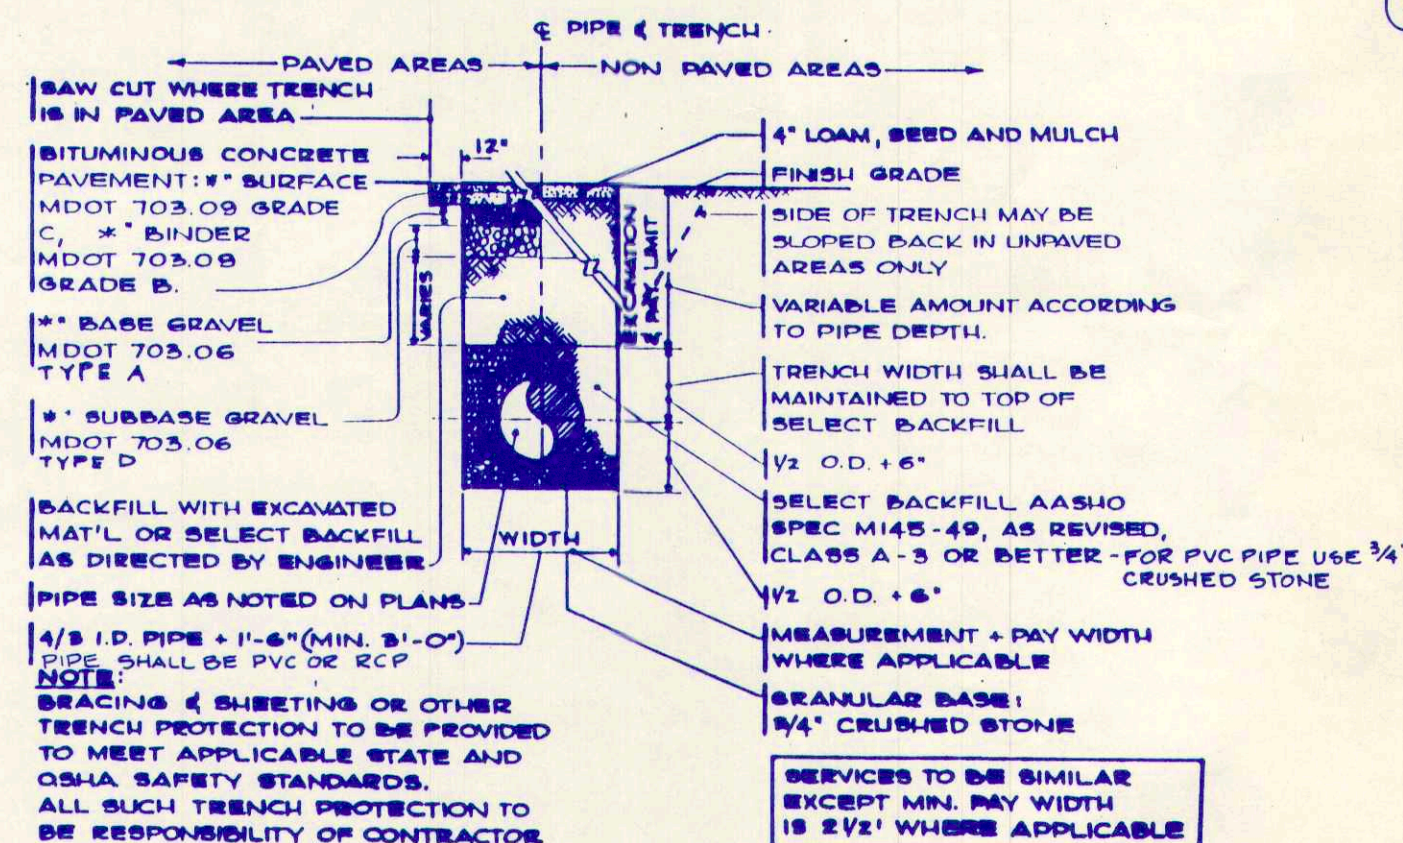 ℄ PIPE & TRENCH
PAVED AREAS
NON PAVED AREAS
SAW CUT WHERE TRENCH
IS IN PAVED AREA
BITUMINOUS CONCRETE
PAVEMENT: *" SURFACE
MDOT 703.09 GRADE
C, *" BINDER
MDOT 703.09
GRADE B.
*" BASE GRAVEL
MDOT 703.06
TYPE A
*" SUBBASE GRAVEL
MDOT 703.06
TYPE D
BACKFILL WITH EXCAVATED
MAT'L OR SELECT BACKFILL
AS DIRECTED BY ENGINEER
PIPE SIZE AS NOTED ON PLANS
4/3 I.D. PIPE + 1'-6" (MIN. 3'-0")
PIPE SHALL BE PVC OR RCP
NOTE:
BRACING & SHEETING OR OTHER
TRENCH PROTECTION TO BE PROVIDED
TO MEET APPLICABLE STATE AND
OSHA SAFETY STANDARDS.
ALL SUCH TRENCH PROTECTION TO
BE RESPONSIBILITY OF CONTRACTOR
12"
VARIES
EXCAVATION
& PAY LIMIT
WIDTH
4" LOAM, SEED AND MULCH
FINISH GRADE
SIDE OF TRENCH MAY BE
SLOPED BACK IN UNPAVED
AREAS ONLY
VARIABLE AMOUNT ACCORDING
TO PIPE DEPTH.
TRENCH WIDTH SHALL BE
MAINTAINED TO TOP OF
SELECT BACKFILL
1/2 O.D. + 6"
SELECT BACKFILL AASHO
SPEC M145-49, AS REVISED,
CLASS A-3 OR BETTER - FOR PVC PIPE USE 3/4"
CRUSHED STONE
1/2 O.D. + 6"
MEASUREMENT + PAY WIDTH
WHERE APPLICABLE
GRANULAR BASE:
3/4" CRUSHED STONE
SERVICES TO BE SIMILAR
EXCEPT MIN. PAY WIDTH
IS 2 1/2' WHERE APPLICABLE